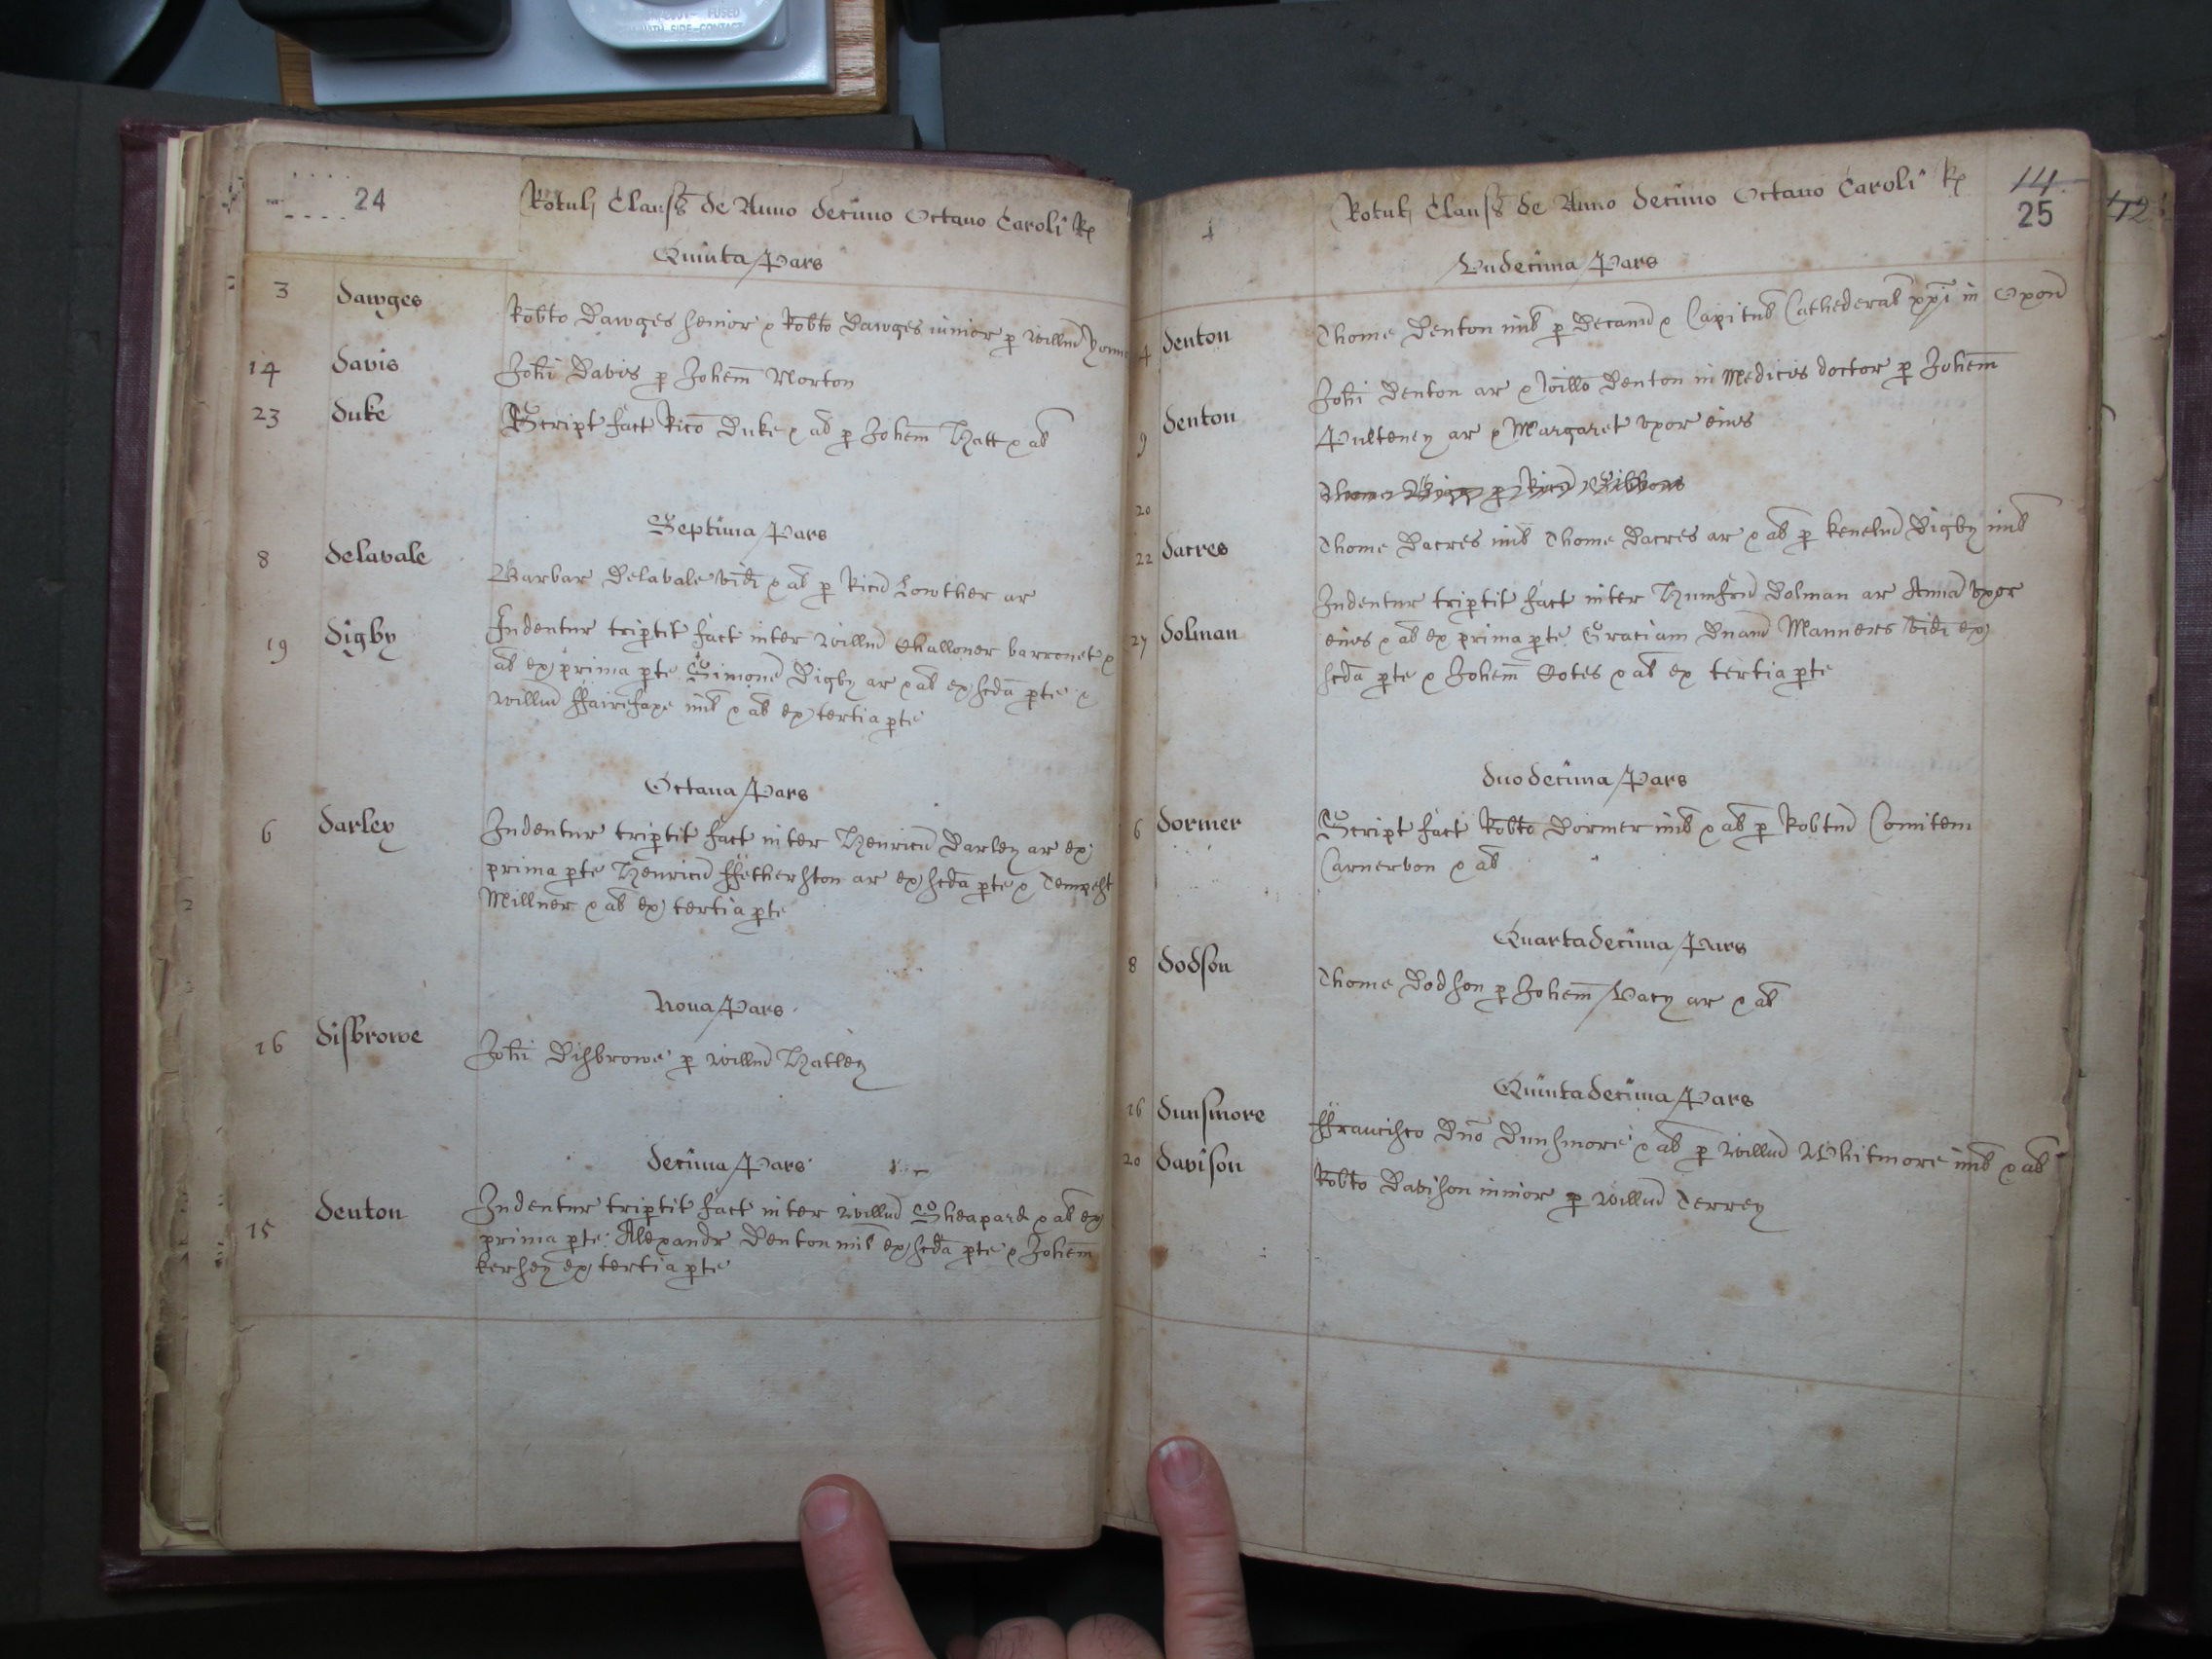 FUSED
WITH SIDE-CONTACT
24
Rotuli Clausz de Anno decimo Octauo Caroli Rs
Quinta Pars
3 Dawges Robto Dawges senior & Robto Dawges iunior p willm
14 Davis Johi Davis p Johem Norton
23 Duke Script fact Rico Duke & al p Johem Hatt & al
Septima Pars
8 Delavale Barbar Delavale vid & al p Ricm Lowther ar
19 Digby Indentur triptit fact inter willm Challoner barronet &
al ex prima pte Simone Digby ar & al ex scda pte &
willm ffairefaxe mil & al ex tertia pte
Octaua Pars
6 Darley Indentur triptit fact inter Henricu Darley ar ex
prima pte Henricu ffetherston ar ex scda pte & Tempest
Millner & al ex tertia pte
Nona Pars
16 Disbrowe Johi Disbrowe p willm Hatley
Decima Pars
15 Denton Indentur triptit fact inter willm Sheapard & al ex
prima pte Alexandr Denton mil ex scda pte & Johem
Kersey ex tertia pte
14
25
Rotuli Clausz de Anno decimo Octauo Caroli Rs
Vndecima Pars
4 Denton Thome Denton mil p Decanu & Capitul Cathederal xpi in Oxon
9 Denton Johi Denton ar & willo Denton in Medicis doctor p Johem
Pulteney ar & Margaret vxor eius
20 Thome p Ricu Gibbons
22 Dacres Thome Dacres mil Thome Dacres ar & al p Kenelm Digby mil
27 Dolman Indentur triptit fact inter Humfru Dolman ar Anna vxor
eius & al ex prima pte Graciam Dnam Manners vid ex
scda pte & Johem Cotes & al ex tertia pte
Duodecima Pars
6 Dormer Script fact Robto Dormer mil & al p Robtu Comitem
Carnervon & al
Quartadecima Pars
8 Dodson Thome Dodson p Johem Pacy ar & al
Quintadecima Pars
16 Dunsmore ffrancisco Dno Dunsmore & al p willm Whitmore mil & al
20 Davison Robto Davison iunior p willm Terrey